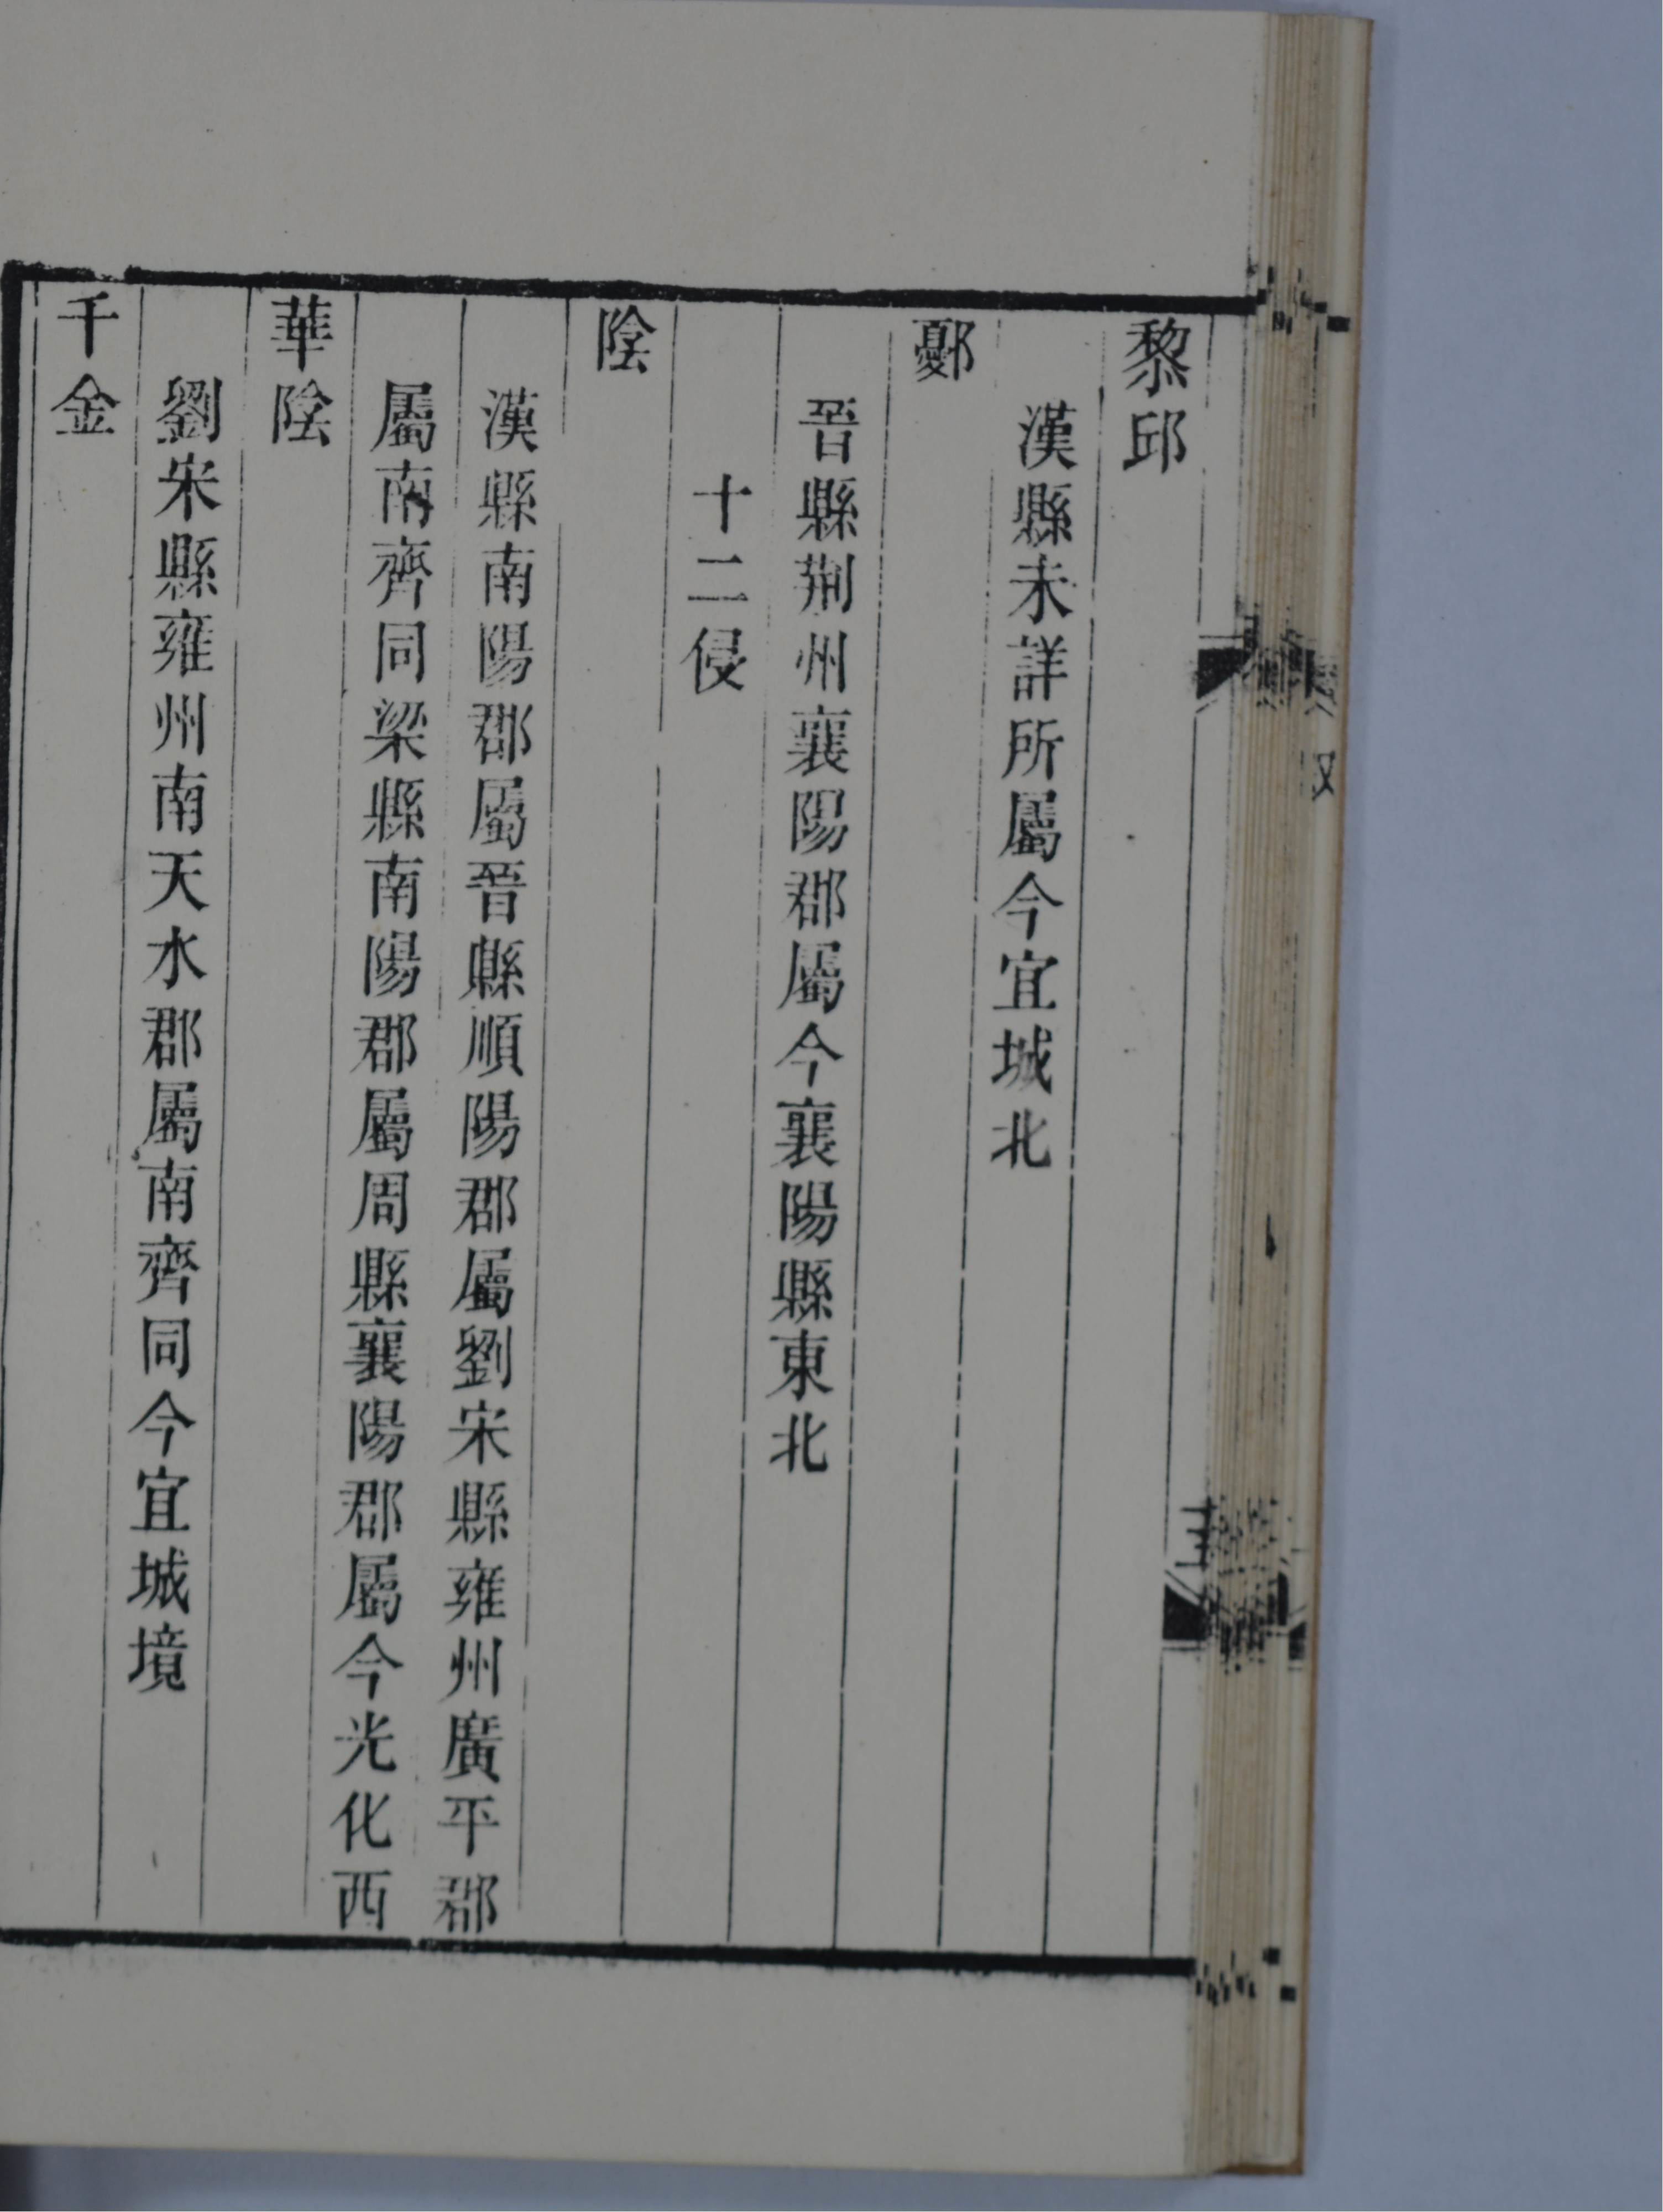 黎邱
漢縣未詳所屬今宜城北
鄾
晉縣荆州襄陽郡屬今襄陽縣東北
十二侵
陰
漢縣南陽郡屬晉縣順陽郡屬劉宋縣雍州廣平郡
屬南齊同梁縣南陽郡屬周縣襄陽郡屬今光化西
華陰
劉宋縣雍州南天水郡屬南齊同今宜城境
千金